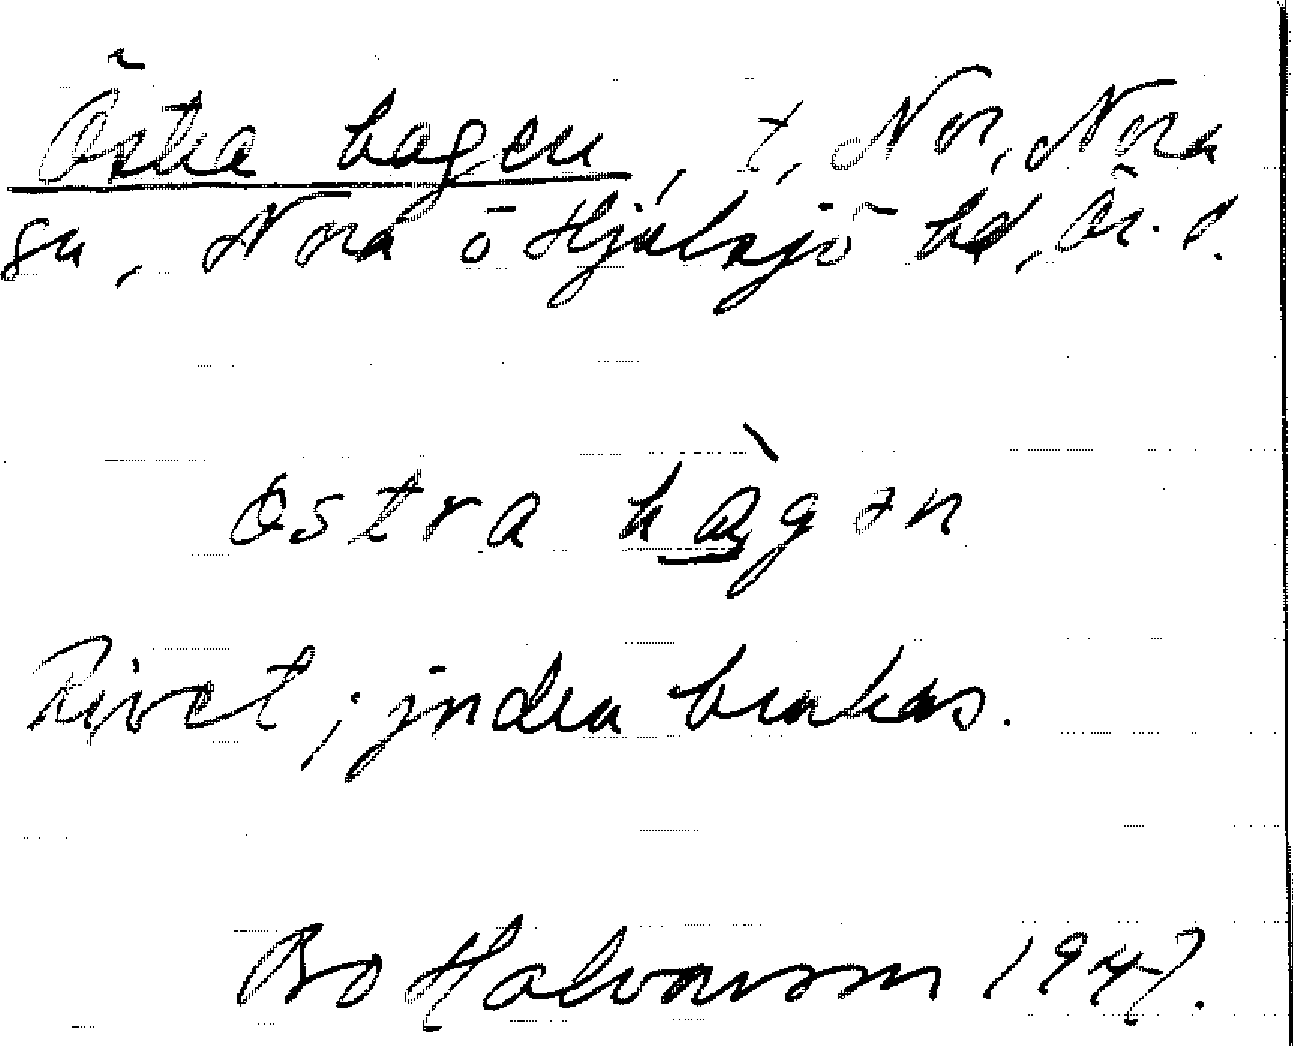 Östra hagen, t, Nor, Nora
sn, Nora o Hjulsjö hd, Ör. l.
östra hàgən
Rivet; jorden brukas.
Bo Halvarsson 1947.